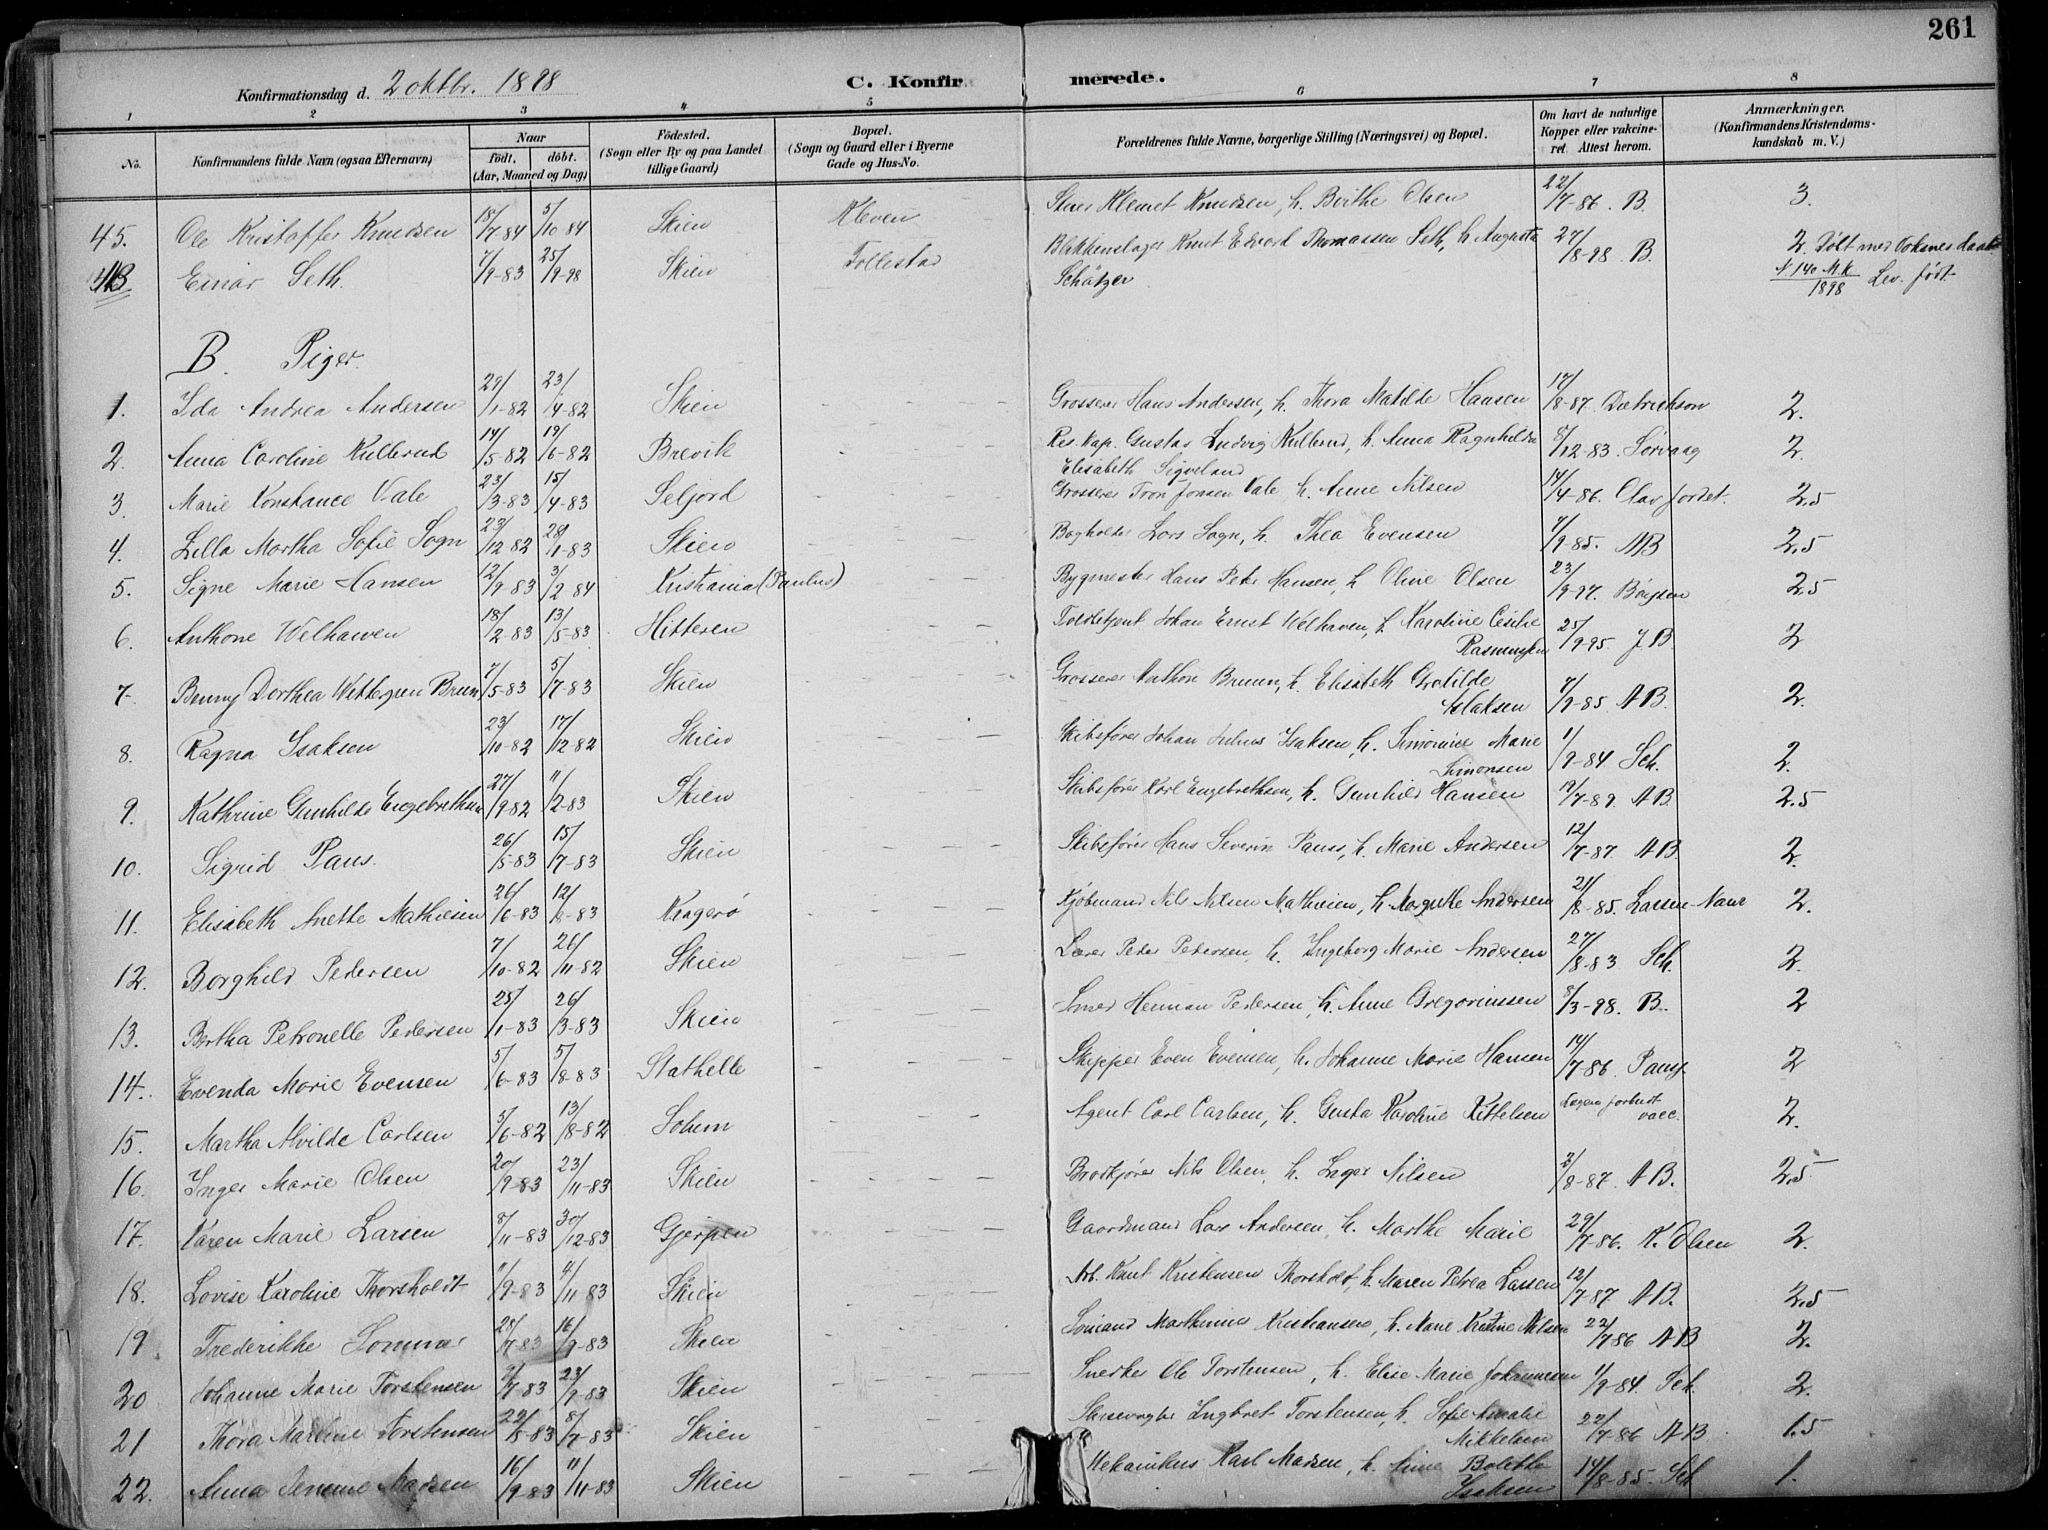 261
Konfirmationsdag d. 2 oktbr. 1898
C. Konfirmerede.
1 2 3 4 5 6 7 8
No. Konfirmandens fulde Navn (ogsaa Efternavn) Naar født, døbt. (Aar, Maaned og Dag) Fødested. (Sogn eller By og paa Landet tillige Gaard) Bopæl. (Sogn og Gaard eller i Byerne Gade og Hus-No. Forældrenes fulde Navne, borgerlige Stilling (Næringsvei) og Bopæl. Om havt de naturlige Kopper eller vakcineret. Attest herom. Anmærkninger. (Konfirmandens Kristendomskundskab m. V.)
45. Ole Kristoffer Knudsen 18/7-84 5/10 84 Skien Kleven Klemet Knudsen, h. Birthe Olsen 22/7-86. B. 3.
Einar Seth. 7/9-83 25/9-98 Skien Follestad Blikkenslager Knut Edvard Thomassen Seth, h. Augusta Schätzer 27/8-98 B. 2. Døbt med
N 140 M.K./1898 Lev. født
B. Piger.
1. Ida Andrea Andersen 29/1-82 23/4-82 Skien Grosserer Hans Andersen, h. Thora Matilde Hansen 17/8-87. Dietrichson 2.
2. Anna Caroline Kullerud 14/5-82 19/6-82 Brevik Res. Kap. Gustav Ludvig Kullerud, h. Anna Ragnhilda Elisabeth Sigveland 8/12-83. Sørvaag 2.
3. Marie Konstance Vale 23/3-83 15/4-83 Seljord Grosserer Tron Jonsen Vale h. Anne Nilsen 14/4-86. Olav Jordet. 2.5
4. Lilla Martha Sofie Sogn 23/12 82 28/1-83 Skien Bogholder Lars Sogn, h. Thea Evensen 4/9-85. AB 2.5
5. Signe Marie Hansen 12/9-83 3/2-84 Kristiania (Paulus) Bygmester Hans Peter Hansen, h. Oline Olsen 23/9-97. 2.5
6. Anthone Welhaven 18/2-83 13/5-83 Hitteren Toldbetjent Johan Ernst Welhaven, h. Karoline Cecilie Rasmussen 25/9-95 JB 2
7. Benny Dorthea Wettergren Bruun 7/5-83 5/7-83 Skien Grosserer Anthon Bruun, h. Elisabeth Clotilde Aslaksen 4/9-85. AB. 2.
8. Ragna Isaksen 23/10-82 17/12-82 Skien Skibsfører Johan Julius Isaksen, h. Simonine Marie Simonsen 1/9-84. Sch. 2.
9. Kathrine Gunhilde Engebrethsen 27/9-82 11/2-83 Skien Skibsfører Karl Engebrethsen, h. Gunhild Hansen 19/7-89. AB. 2.5
10. Sigrid Paus. 26/5-83 15/7-83 Skien Skibsfører Hans Severin Paus, h. Marie Andersen 12/7-87. AB 2.
11. Elisabeth Anette Mathiesen 26/6-83 12/8-83 Kragerø Kjøbmand Nils Nilsen Mathisen, h. Andersen 21/8-85. Larsen-Naur 2.
12. Borghild Pedersen 7/10-82 26/11-82 Skien Lærer Peder Pedersen, h. Ingeborg Marie Andersen 27/8-83 Sch. 2.
13. Bertha Petronelle Pedersen 25/1-83 26/3-83 Skien Smed Herman Pedersen, h. Anne Gregoriussen 8/3-98. B. 2
14. Evenda Marie Evensen 5/6-83 5/8-83 Stathelle Skipper Even Evensen, h. Johanne Marie Hansen 14/7-86. Paus. 2
15. Martha Alvilde Carlsen 5/6-82 13/8-82 Solum Agent Carl Carlsen, h. Gusta Karoline Kittelsen forbudt vacc. 2.
16. Inger Marie Olsen 20/9-83 23/11-83 Skien Nils Olsen, h. Inger Nilsen 3/8-87. AB. 2.5
17. Karen Marie Larsen 8/11-83 30/12-83 Gjerpen Gaardmand Lars Andersen, h. Marthe Marie 29/7-86. K. Olsen 2.
18. Lovise Karoline Thorsholdt 11/9-83 4/11 83 Skien Arb. Knut Kristensen Thorsholdt, h. Maren Petrea Larsen 12/7-87 AB. 2.5
19. Frederikke Sommer 28/7-83 16/9-83 Skien Sømand Marthinius Kristiansen, h. Marie Kristine Nilsen 22/7-86 AB 2.
20 Johanne Marie Torstensen 2/7-83 23/9-83 Skien Snedker Ole Torstensen, h. Elise Marie Johannesen 1/9-84. Sch. 2.
21 Thora Martine Torstensen 22/5-83 8/7-83 Skien Slusevogter Ingbret Torstensen, h. Sofie Amalie Mikkelsen 22/7-86 AB 1.5
22. Anna Madsen 16/9-83 11/11-83 Skien Mekanikus Karl Madsen, h. Anne Bolette Isaksen 14/8-85. Sch 1.